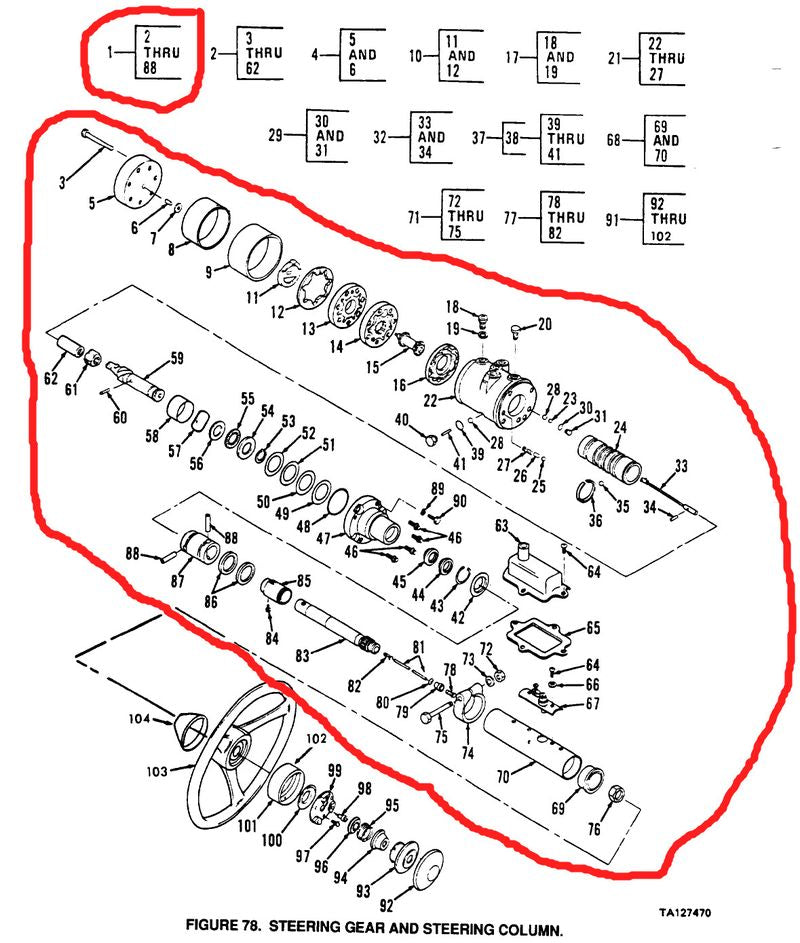 1 2 THRU 88
2 3 THRU 62
4 5 AND 6
10 11 AND 12
17 18 AND 19
21 22 THRU 27
29 30 AND 31
32 33 AND 34
37 38 39 THRU 41
68 69 AND 70
71 72 THRU 75
77 78 THRU 82
91 92 THRU 102
3
5
6
7
8
9
11
12
13
14
15
16
18
19
20
22
28
23
30
31
24
40
41
39
28
27
26
25
33
34
35
36
62
61
59
60
58
57
56
55
54
53
52
51
50
49
48
47
89
90
46
46
45
44
43
42
63
64
65
64
66
67
88
88
87
86
85
84
83
82
81
80
79
78
73
72
75
74
70
69
76
104
103
102
101
100
99
98
97
96
95
94
93
92
TA127470
FIGURE 78. STEERING GEAR AND STEERING COLUMN.